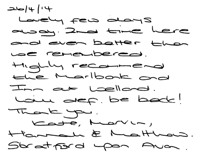 26/4/14
Lovely few days
away. 2nd time here
and even better than
we remembered.
Highly recommend
the Marlbank and
Inn at Welland.
Will def. be back!
Thank you.
Kate, Marvin,
Hannah & Matthew.
Stratford upon Avon.